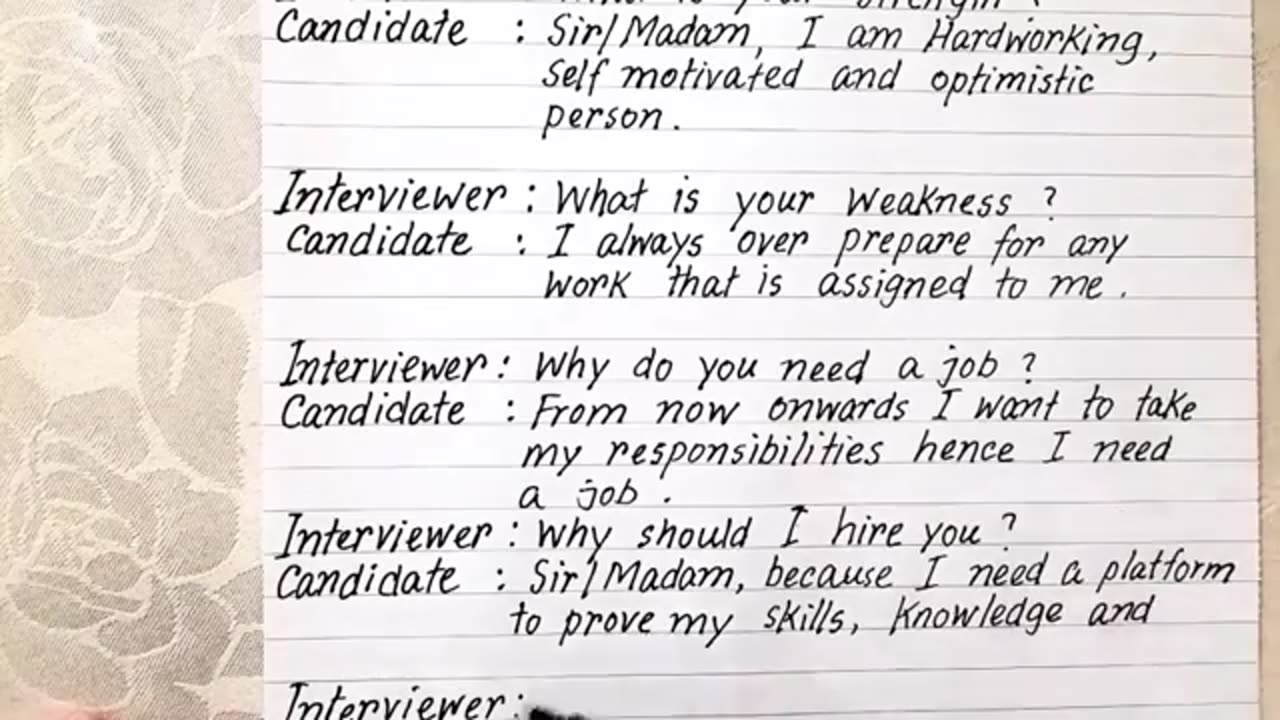 Candidate : Sir/Madam, I am Hardworking,
Self motivated and optimistic
person.
Interviewer : What is your Weakness ?
Candidate : I always over prepare for any
work that is assigned to me.
Interviewer : Why do you need a job ?
Candidate : From now onwards I want to take
my responsibilities hence I need
a job.
Interviewer : Why should I hire you ?
Candidate : Sir/Madam, because I need a platform
to prove my skills, Knowledge and
Interviewer :